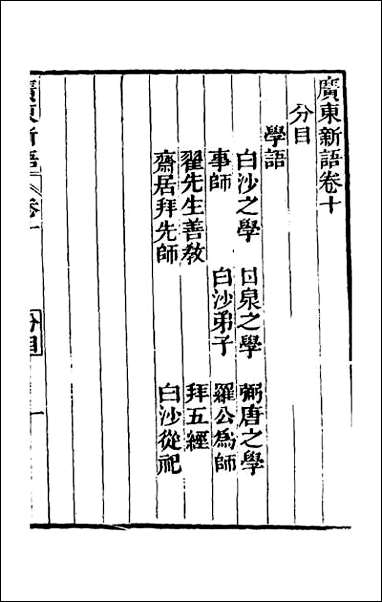 廣東新語卷十
分目
學語
白沙之學　甘泉之學　弼唐之學
事師　白沙弟子　羅公爲師
翟先生善教　拜五經
齋居拜先師　白沙從祀
廣東新語　卷十　分目　一